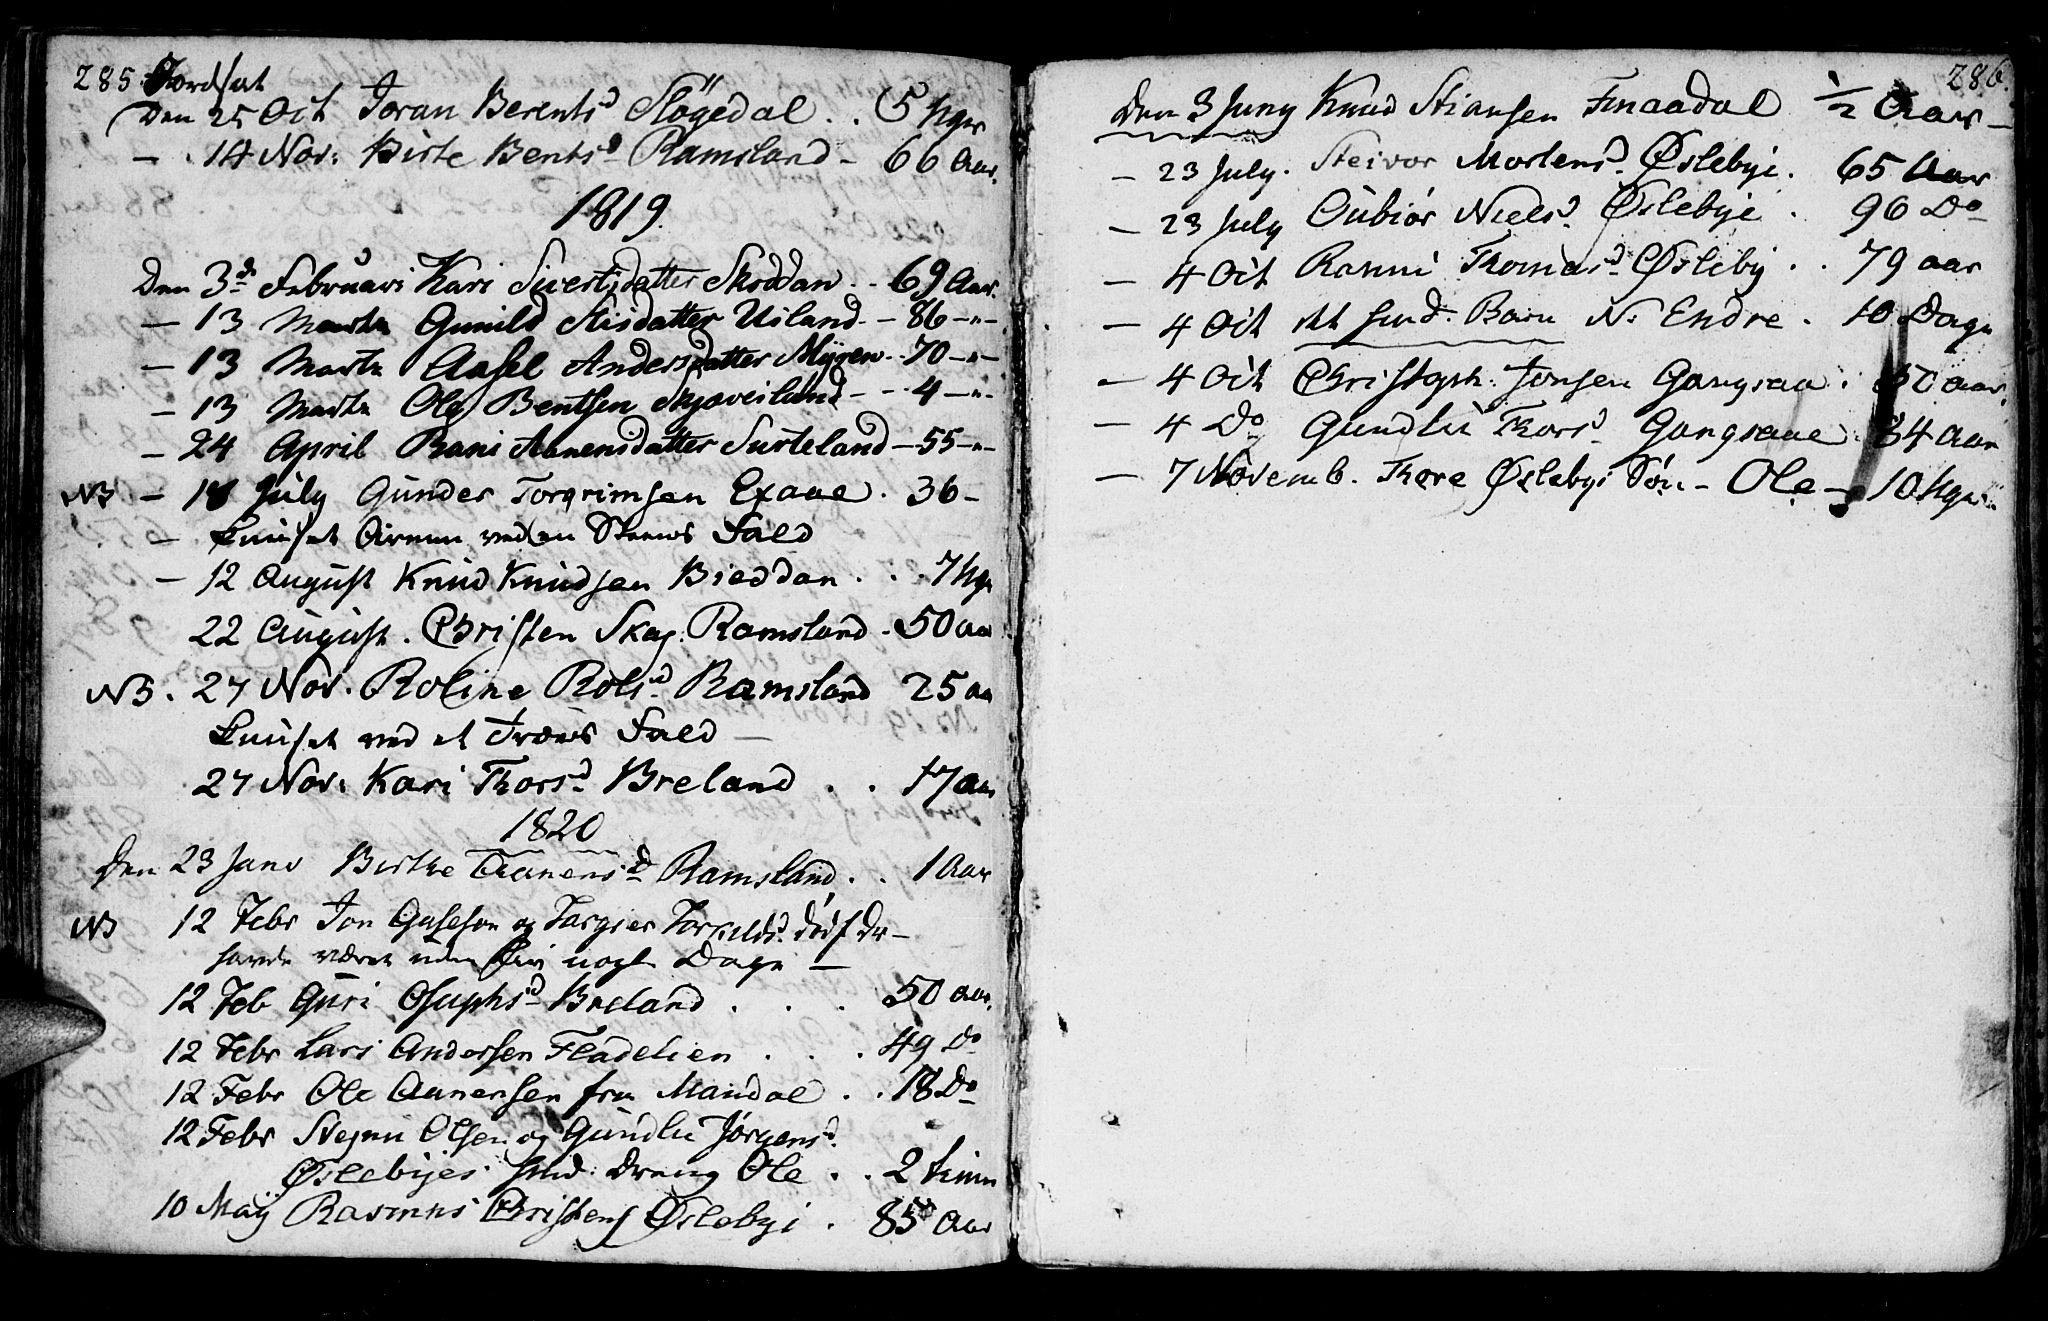 285. Jordsat
Den 25 Oct Joran Berents d Slögedal . . 5 Uger
— . 14 Nov: Birte Bents d Ramsland - 66 Aar.
1819.
Den 3 d Februari Kari Sivertsdatter Skoddan . . 69 Aar.
— 13 Martz Gunild Stisdatter Usland - 86 -"-
— 13 Martz Aasel Andersdatter Myren . . 70 -"-
— 13 Martz Ole Bentsen Skjæveisland - - 4 -"-
— 24 April Rani Aanensdatter Surteland - 55 -"-
NB — 18 July Gunder Torgrimsen Exaae . 36 -
— knuset Armen ved en Steens Fald
— 12 August Knud Knudsen Bieddan . . 7 Uge
22 August . Christen Skag. Ramsland . 50 aa
NB . 27 Nov. Roline Rols d Ramsland 25 aa
knuset ved et Træes Fald —
27 Nov. Kari Thors d Breland . . 17 aar
1820
Den 23 Janv Birthe Aanens d Ramsland . . 1 Aar
NB 12 Febr Jon Guseson og Targier Torkilds d død f Dr —
havde været uden nogle Dage —
12 Feb Guri Osuphs d Breland . . . 50 aar.
12 Febr Lars Andersen Fladelien . . . 49 Do
12 Febr Ole Aanensen fra Mandal . . 18 Do
12 Febr Stepni Olsen og Gundlu Jörgens d.
Øslebyes hmd: Dreng Ole . . 2 timer
10 Maij Rasmus Christens Øslebyi . 85 Aar
286.
Den 3 Juny Knud Stiansen Finaadal ½ Aar —
— 23 July . Steivor Mortens d Øslebyi . 65 Aar
— 23 July Gubiör Niels d Øslebye . 96 Do
— 4 Oct Ranni Thomas d Øsleby . . 79 aar
— 4 Oct et hmd: Barn N. Endre . 10 Dage
— 4 Oct Christoph: Jonsen Gangsaa . aar.
— 4 Do Gundlu Thors d Gangsaae . 84 Aar
— 7 Novemb. Thore Øslebyi Sön - Ole - 10 Uger